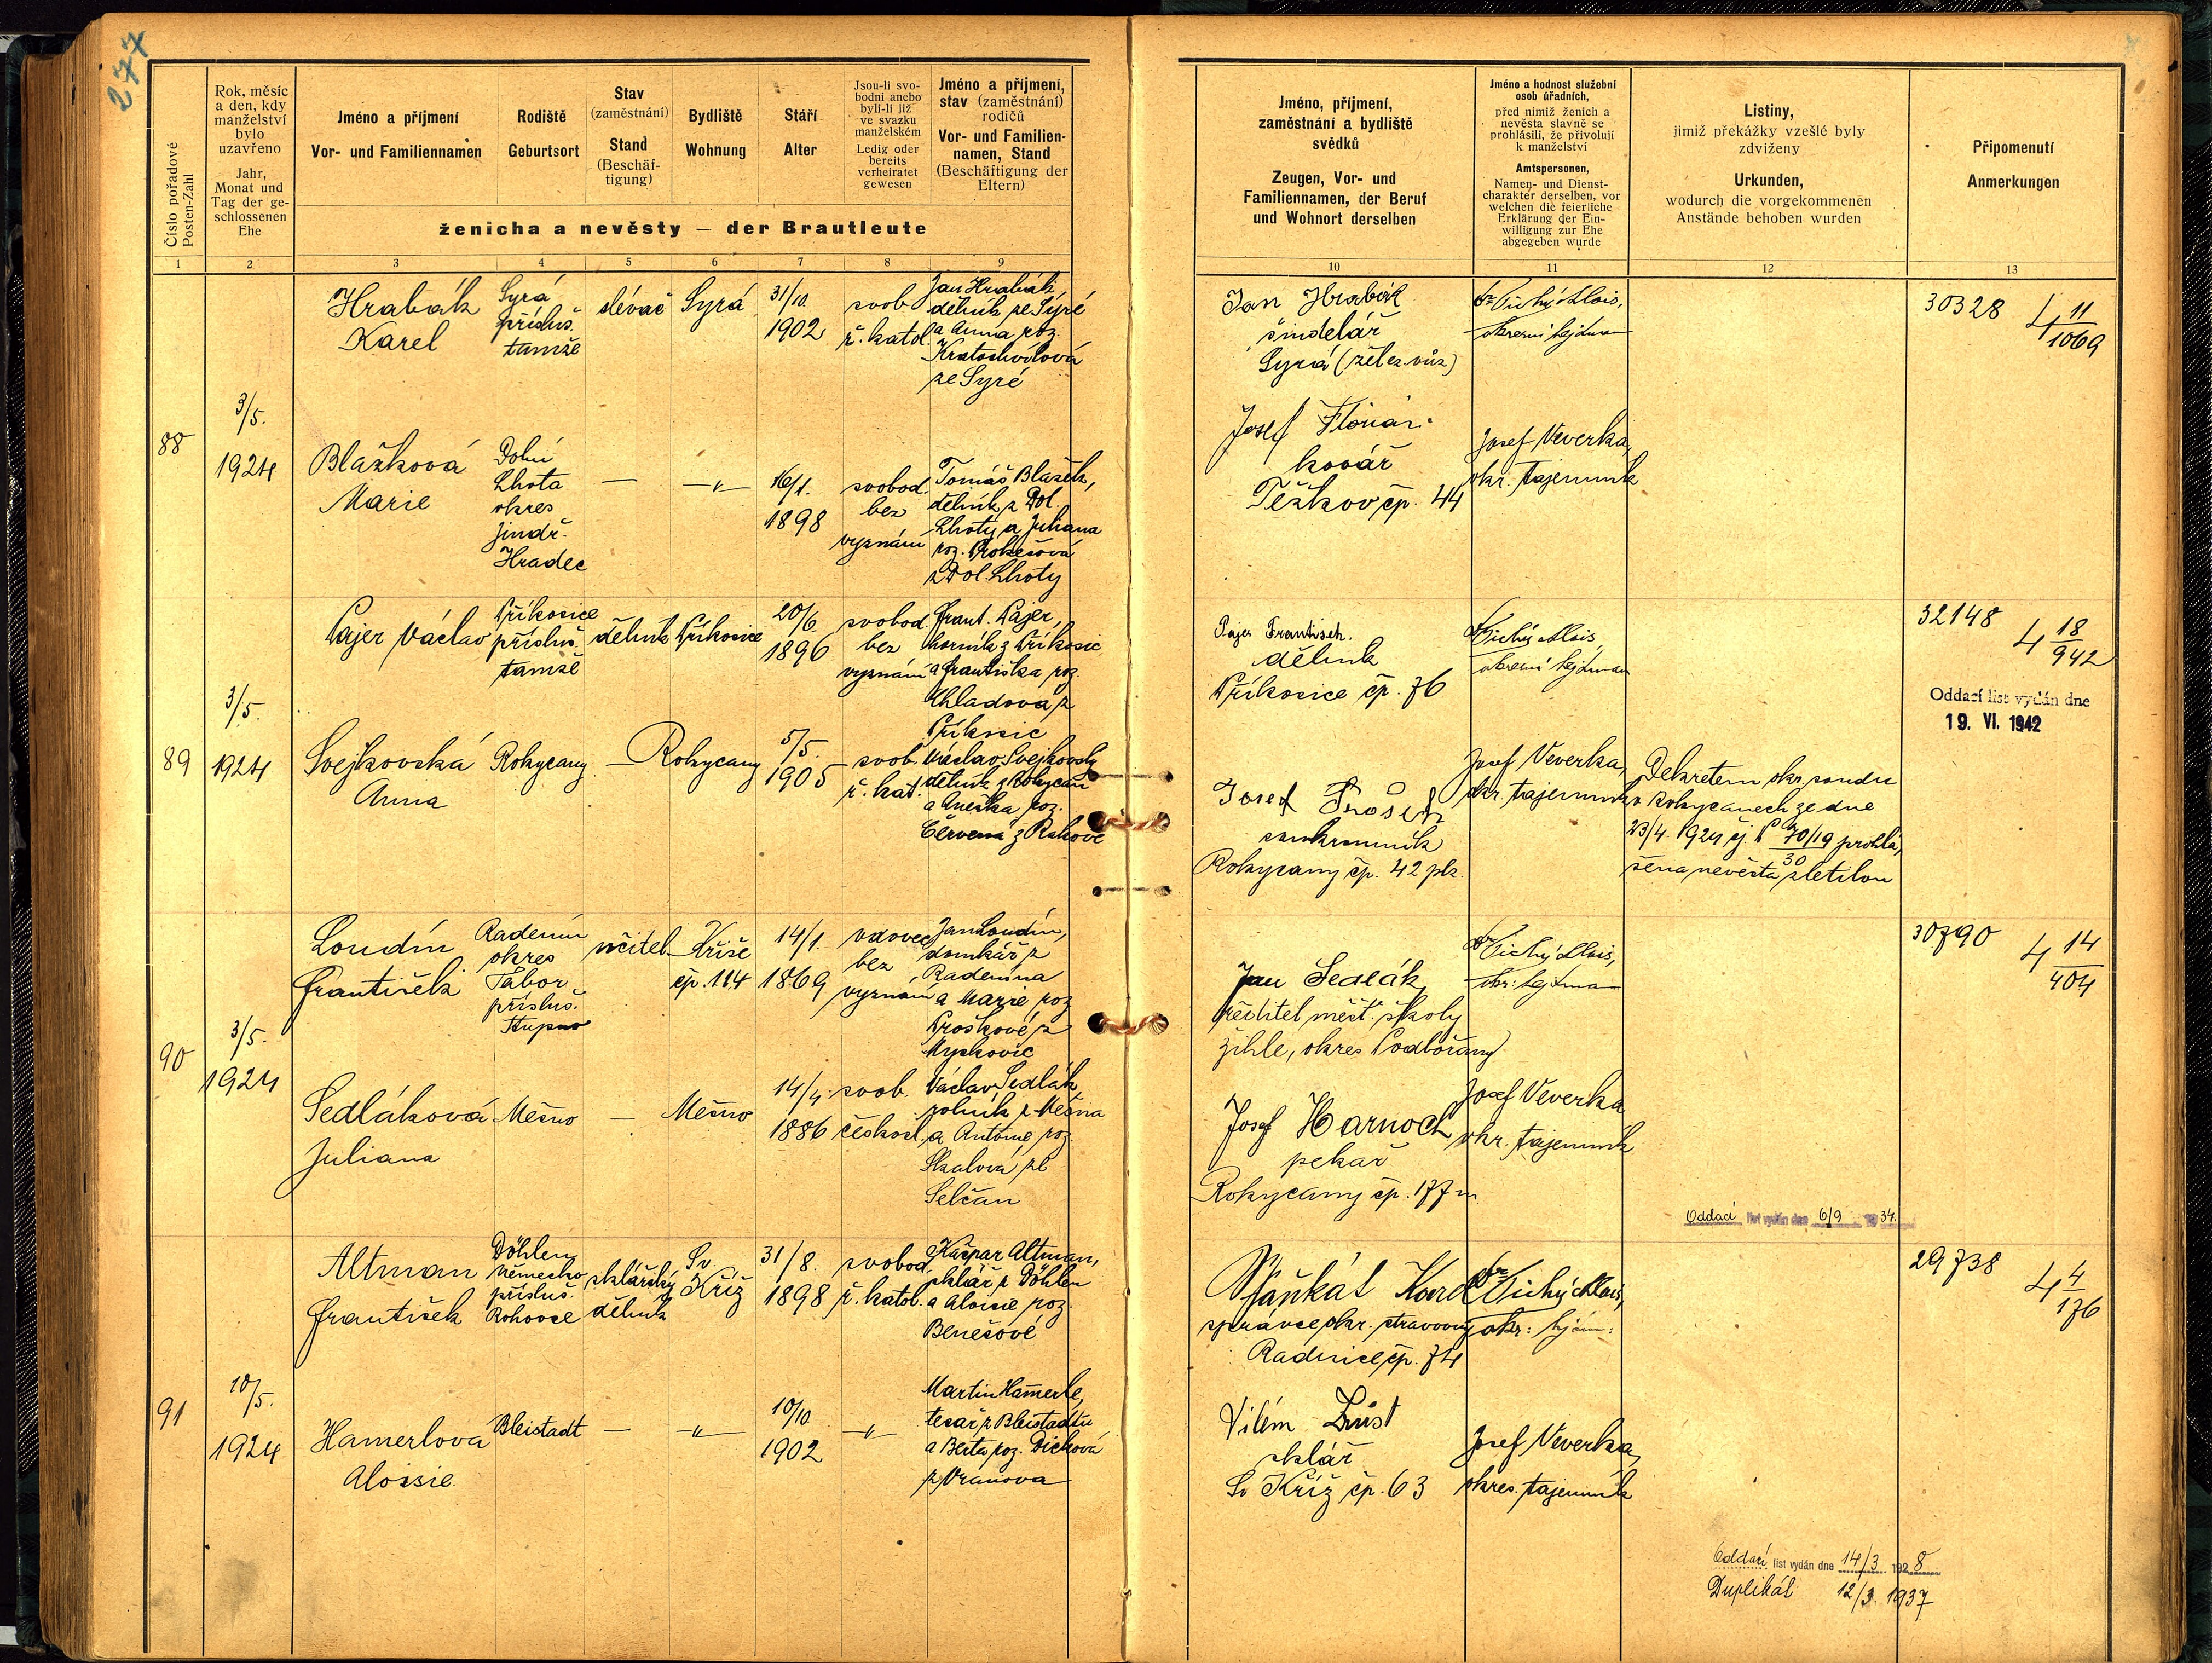 277
Číslo pořadové
Posten-Zahl
Rok, měsíc
a den, kdy
manželství
bylo
uzavřeno
Jahr,
Monat und
Tag der ge-
schlossenen
Ehe
Jméno a příjmení
Vor- und Familiennamen
Rodiště
Geburtsort
Stav
(zaměstnání)
Stand
(Beschäf-
tigung)
Bydliště
Wohnung
Stáří
Alter
Jsou-li svo-
bodni anebo
byli-li již
ve svazku
manželském
Ledig oder
bereits
verheiratet
gewesen
Jméno a příjmení,
stav (zaměstnání)
rodičů
Vor- und Familien-
namen, Stand
(Beschäftigung der
Eltern)
ženicha a nevěsty – der Brautleute
Jméno, příjmení,
zaměstnání a bydliště
svědků
Zeugen, Vor- und
Familiennamen, der Beruf
und Wohnort derselben
Jméno a hodnost služební
osob úřadních,
před nimiž ženich a
nevěsta slavně se
prohlásili, že přivolují
k manželství
Amtspersonen,
Namen- und Dienst-
charakter derselben, vor
welchen die feierliche
Erklärung der Ein-
willigung zur Ehe
abgegeben wurde
Listiny,
jimiž překážky vzešlé byly
zdviženy
Urkunden,
wodurch die vorgekommenen
Anstände behoben wurden
Připomenutí
Anmerkungen
1 2 3 4 5 6 7 8 9 10 11 12 13
88
3/5.
1924
Hrabák
Karel
Syrá
přísluš.
tamže
slévač
Syrá
31/10.
1902
svob
ř. katol.
Jan Hrabák,
dělník ze Syré
a Anna roz.
Kratochvílová
ze Syré
Jan Hrabák
šindelář
Syrá (želez. vůz)
Dr Tichý Alois,
okresní hejtman
30328
4 11/1069
Blažková
Marie
Dolní
Lhota
okres
Jindř.
Hradec
—
—„—
16/1.
1898
svobod.
bez
vyznání
Tomáš Blažek,
dělník z Dol.
Lhoty a Juliana
roz. Prokešová
z Dol. Lhoty
Josef Florián
kovář
Těškov čp. 44
Josef Veverka,
okr. tajemník
89
3/5.
1924
Pajer Václav
Příkosice
přísluš.
tamže
dělník
Příkosice
20/6
1896
svobod.
bez
vyznání
Frant. Pajer,
horník z Příkosic
a Františka roz.
Chladová z
Příkosic
Pajer František.
dělník
Příkosice čp. 76
Dr Tichý Alois,
okresní hejtman
32148
4 18/942
Oddací list vydán dne
19. VI. 1942
Svejkovská
Anna
Rokycany
—
Rokycany
5/5.
1905
svob.
ř. kat.
Václav Svejkovský
dělník z Rokycan
a Anežka roz.
Červená z Rakové
Josef
soukromník
Rokycany čp. 42 plz.
Josef Veverka,
okr. tajemník
Dekretem okr. soudu
v Rokycanech ze dne
23/4. 1924 čj. P 70/19 prohlá-
30
šena nevěsta zletilou
90
3/5.
1924
Loudín
František
Radenín
okres
Tábor
přísluš.
Stupno
učitel
Kříše
čp. 114
14/1.
1869
vdovec
bez
vyznání
Jan Loudín,
domkář z
Radenína
a Marie roz
Proškové z
Myskovic
Jan Sedlák
ředitel měšť. školy
Žihle, okres Podbořany
Dr Tichý Alois,
okr. hejtman
30790
4 14/404
Sedláková
Juliana
Mešno
—
Mešno
14/4.
1886
svob.
českosl.
Václav Sedlák
rolník z Mešna
a Antonie roz.
Skalová ze
Selčan
Josef Harnoch
pekař
Rokycany čp. 177
Josef Veverka
okr. tajemník
Oddací list vydán dne 6/9 1934.
91
10/5.
1924
Altman
František
Döhlen
Německo
přísluš.
Rohovce
sklářský
dělník
Sv.
Kříž
31/8.
1898
svobod.
ř. katol.
Kašpar Altman,
sklář z Döhlen
a Aloisie roz.
Benešové
Karel
správce okr. stravovny
Radnice čp. 74
Dr Tichý Alois,
okr. hejtm:
29738
4 4/176
Hamerlová
Aloisie
Bleistadt
—
—„—
10/10
1902
—„—
Martin Hamerle,
tesař z Bleistadtu
a Berta roz. Dicková
z Vranova
Vilém
sklář
Sv Kříž čp. 63
Josef Veverka,
okres. tajemník
Oddací list vydán dne 14/3 1928
Duplikát 12/3. 1937